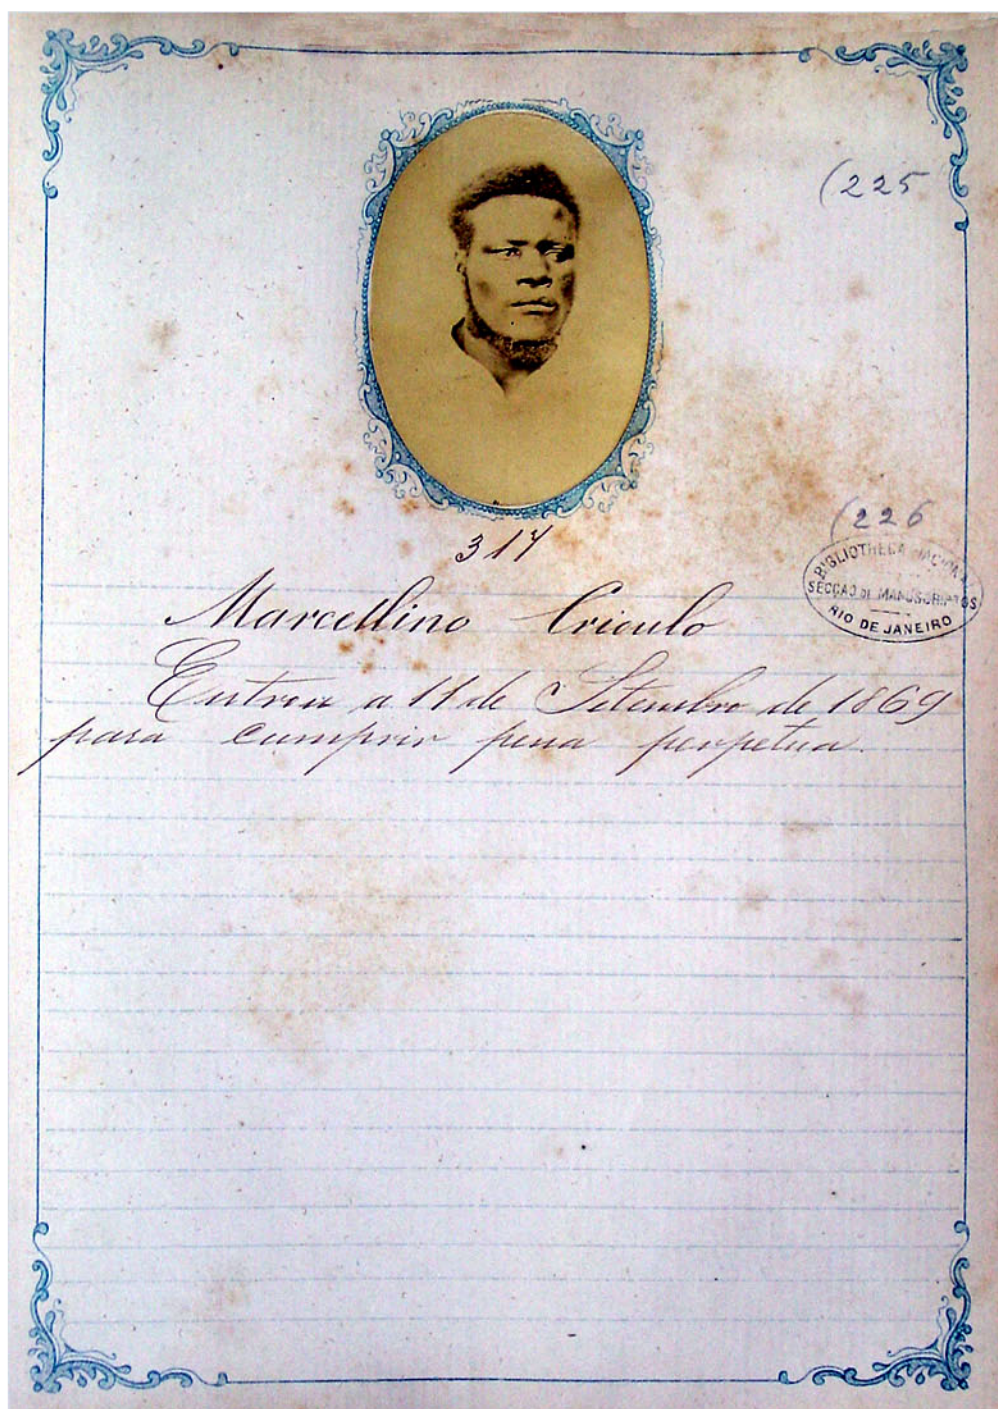 (225
(226
317
BIBLIOTHECA NACIONAL
SECÇÃO DE MANUSCRIPTOS
RIO DE JANEIRO
Marcellino Crioulo
Entrou a 11 de Setembro de 1869
para cumprir pena perpetua.